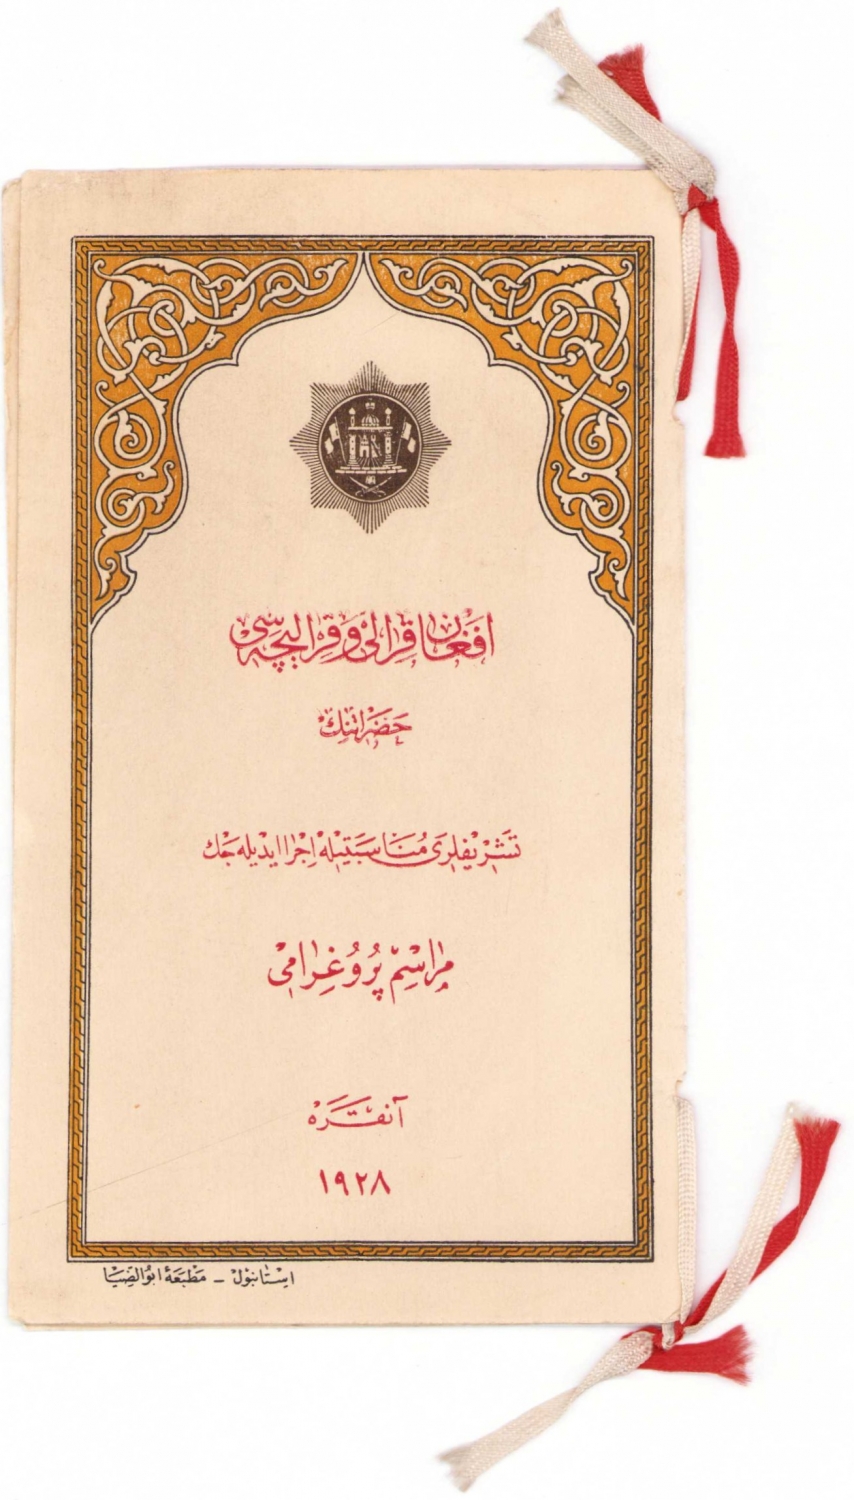 افغان قرالی و قرالیچه سی
حضراتنك
تشریفلری مناسبتیله اجرا ایدیله جك
مراسم پروغرامی
آنقره
١٩٢٨
استانبول - مطبعهٔ ابوالضیا